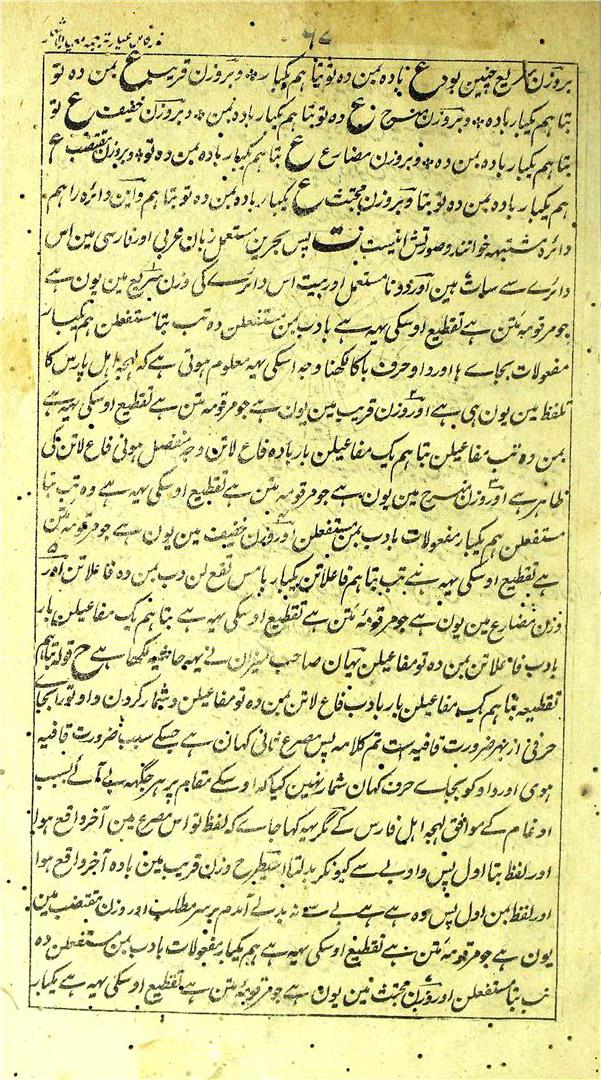 زر کامل عیار ترجمہ معیار الاشعار
۶۷
بروزن سریع چنین بود ع باده بمن ده تو بتا هم یکبار * و بروزن قریب ع بمن ده تو
بتا هم یکبار باده * و بروزن منسرح ع ده تو بتا هم یکبار باده بمن * و بروزن خفیف ع تو
بتا هم یکبار باده بمن ده * و بروزن مضارع ع بتا هم یکبار باده بمن ده تو * و بروزن مقتضب ع
هم یکبار باده بمن ده تو بتا و بروزن مجتث ع یکبار باده بمن ده تو بتا هم و این دائره را هم
دائره مشتبهه خوانند و صورتش اینست ت پس بحرین مستعمل زبان عربی اور فارسی مین اس
دائرے سے سات ہین اور دو نا مستعمل اور بیت اس دائرے کی وزن سریع مین یون ہے
جو مرقومہ متن ہے تقطیع اوسکی یہہ ہے بادب بمن مستفعلن ده تب بتا مستفعلن هم یکبار
مفعولات بجاے ہا اور واو حرف با کا لکھنا وجہ اسکی یہہ معلوم ہوتی ہے کہ لہجہ اہل پارس کا
تلفظ مین یون ہی ہے اور وزن قریب مین یون ہے جو مرقومہ متن ہے تقطیع اوسکی یہہ ہے
بمن ده تب مفاعیلن بتا هم یک مفاعیلن بار باده فاع لاتن وجہ منفصل ہونی فاع لاتن کی
ظاہر ہے اور وزن منسرح مین یون ہے جو مرقومہ متن ہے تقطیع اوسکی یہہ ہے ده تب بتا
مستفعلن هم یکبار مفعولات بادب بمن مستفعلن اور وزن خفیف مین یون ہے جو مرقومہ متن
ہے تقطیع اوسکی یہہ ہے تب بتا هم فاعلاتن یکبار با مس تفع لن دب بمن ده فاعلاتن اور
وزن مضارع مین یون ہے جو مرقومہ متن ہے تقطیع اوسکی یہہ ہے بتا هم یک مفاعیلن بار
بادب فاع لاتن بمن ده تو مفاعیلن یہان صاحب میزان نے یہہ حاشیہ لکھا ہے ح قولہ بتا هم
تقطیعہ بتا هم یک مفاعیلن بار بادب فاع لاتن بمن ده تو مفاعیلن و شمار کردن واو تو را بجاے
حرفی از بہر ضرورت قافیہ است تم کلامہ پس مصرع ثانی کہان ہے جسکے سبب ضرورت قافیہ
ہوی اور واو کو بجاے حرف کہان شمار نہین کیا کہ اوسکے مقام پر ہر جگہہ بے آئے بسبب
ادغام کے موافق لہجہ اہل فارس کے مگر یہہ کہا جاے کہ لفظ تو اس مصرع مین آخر واقع ہوا
اور لفظ بتا اول پس واو بے سے کیونکر بدلتا اسیطرح وزن قریب مین باده آخر واقع ہوا
اور لفظ بمن اول پس وہ ہے ہے بے سے نہ بدلے آمدم برسر مطلب اور وزن مقتضب مین
یون ہے جو مرقومہ متن ہے تقطیع اوسکی یہہ ہے هم یکبار مفعولات بادب بمن مستفعلن ده
تب بتا مستفعلن اور وزن مجتث مین یون ہے جو مرقومہ متن ہے تقطیع اوسکی یہہ ہے یکبار